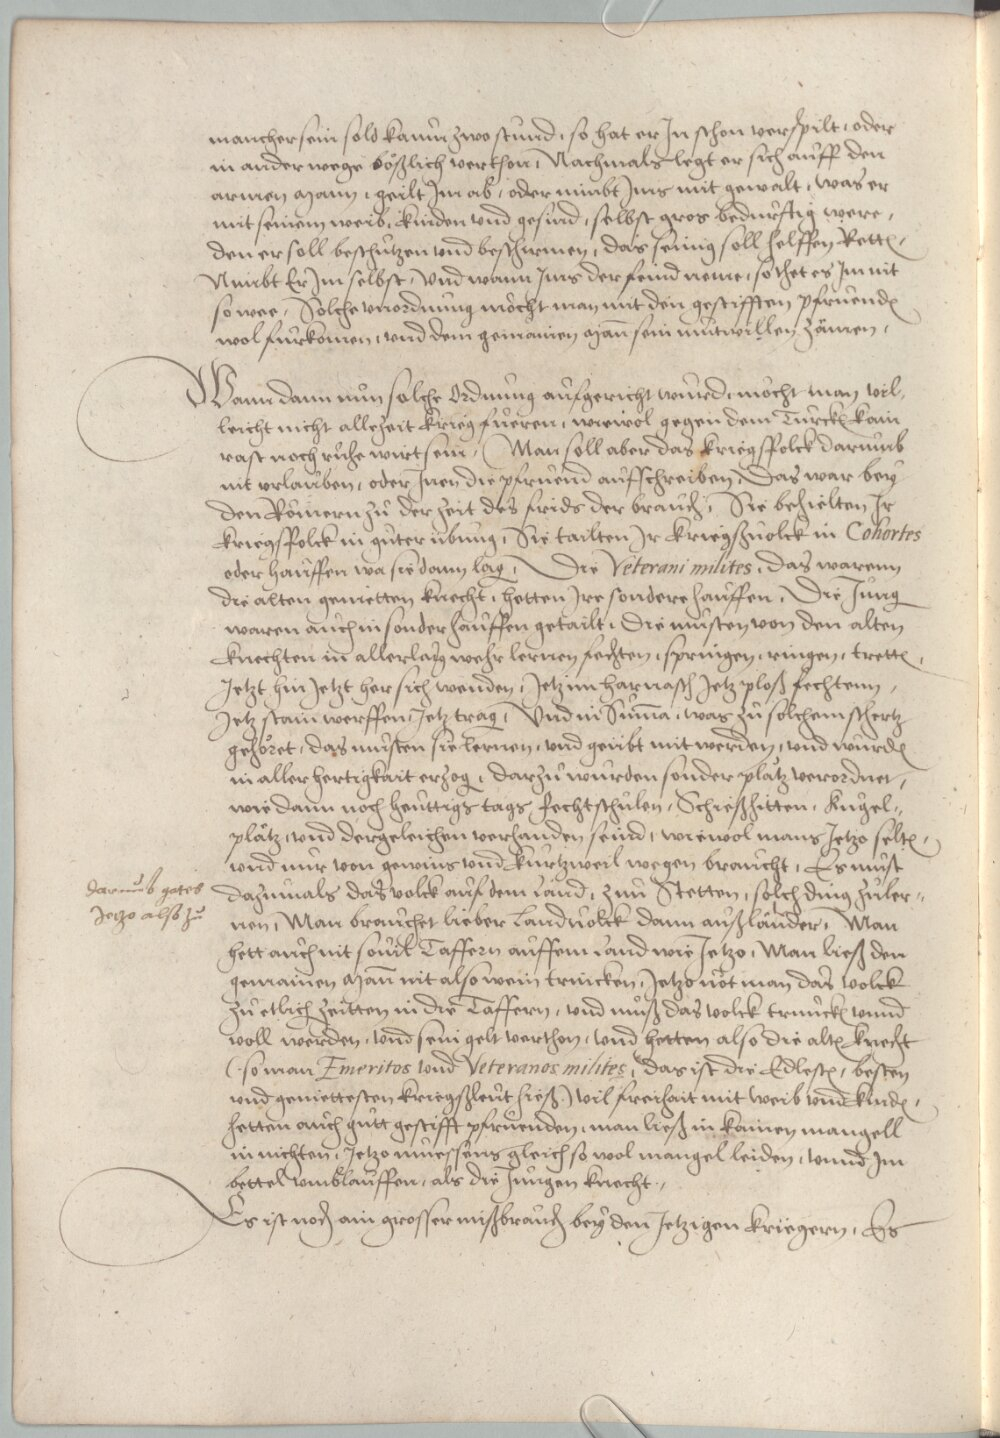 mancher sein sold kaum zwo stund, so hat er Jn schon verspilt, oder
in ander wege bößlich verthon, Nachmals legt er sich auff den
armen Mann, geilt Jm ab, oder nimbt Jms mit gewalt, was er
mit seinem weib, kinden vnd gesind, selbst gros bedürfftig were,
den er soll beschützen vnd beschirmen, das seinig soll helffen Retten,
Nimbt Er Jm selbst, Vnd wann Jms der feind neme, so thet es Jm nit
so wee, Solche vnordnung möcht man mit den gestifften pfruenden
wol fürkomen, vnd dem gemainen Man sein mutwillen zämen,
Wann dann nun solche Ordnung aufgericht wurd, möcht man vil,,
leicht nicht allezeit krieg fueren, wiewol gegen dem Türcken kain
rast noch ruhe wirt sein, Man soll aber das kriegsfolck darumb
nit vrlauben, oder Jnen die pfruend aufschreiben, Das war bey
den Römern zu der zeit des frids der brauch, Sie behielten Jr
kriegsfolck in guter übung, Sie tailten Jr kriegßuolck in Cohortes
oder hauffen wa sie dann lag, Die Veterani milites, das warenn
die alten genietten knecht, hetten Jre sondere hauffen, Die Jung
waren auch in sonder hauffen getailt, die musten von den alten
knechten in allerlay wehr lernen fechten, springen, ringen, tretten,
Jetzt hin Jetzt her sich wenden, Jetz im harnasch Jetz ploß fechtenn,
Jetz stain werffen, Jetz trag, Vnd in Summa, was zu solchem schertz
gehöret, das musten sie lernen, vnd geübt mit werden, vnd wurden
in aller hertigkait erzog, darzu wurden sonder plätz verordnet,
wie dann noch heuttigs tags fechtschulen, Schießhitten, Kugel,,
plätz, vnd dergeleichen verhanden seind, wiewol mans Jetzo selten,
vnd nur von gewins vnd kurtzweil wegen braucht, Es must
darumb gates
Jetzo alß zu
dazumals das volck auf dem Land, zun Stetten, solch ding zuler,,
nen, Man brauchet lieber Landuolck dann außländer, Man
hett auch nit souil Taffern auffem Land wie Jetzo, Man ließ den
gemainen Man nit also wein trincken, Jetzo nöt man das volck
zu etlich zeitten in die Taffern, vnd muß das volck trincken vnnd
voll werden, vnd sein gelt verthon, vnd hetten also die alten knecht
(so man Emeritos vnd Veteranos milites, das ist die Edlesten, besten
vnd geniettesten kriegßleut hieß) vil freihait mit weib vnd kinden,
hetten auch gutt gestifft pfruenden, man ließ in kainen mangell
in nichten, Jetzo muessens gleich so wol mangel leiden, vnnd Jm
bettel vmblauffen, als die Jungen knecht,
Es ist noch ain grosser mißbrauch bey den Jetzigen kriegern, Es